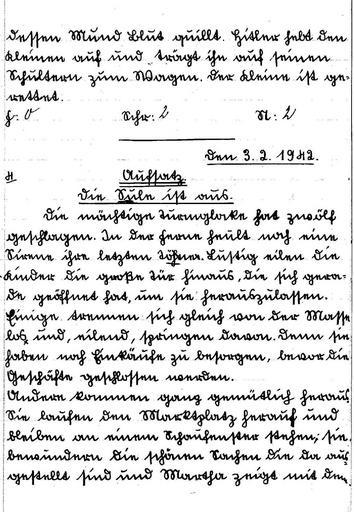 dessen Mund Blut quillt. Hitler hebt den
Kleinen auf und trägt ihn auf seinen
Schultern zum Wagen. Der Kleine ist ge-
rettet.
f: 0 Schr: 2 N: 2
den 3. 2. 1942.
Aufsatz
Die Sule ist aus.
Die mächtige Turmgloke hat zwölf
geschlagen. In der Ferne heult noch eine
Sirene ihre letzten Töhne. Lustig eilen die
Kinder die große Tür hinaus, die sich gera-
de geöffnet hat, um sie herauszulossen.
Einige trennen sich gleich von der Masse
los und, eilend, springen davon. Denn sie
haben noch Einkäufe zu besorgen, bevor die
Geschäfte geschlossen werden.
Andere kommen ganz gemütlich heraus.
Sie laufen den Marktplatz herauf und
bleiben an einem Schaufenster stehen; sie
bewundern die schönen Sachen die da aus-
gestellt sind und Martha zeigt mit dem